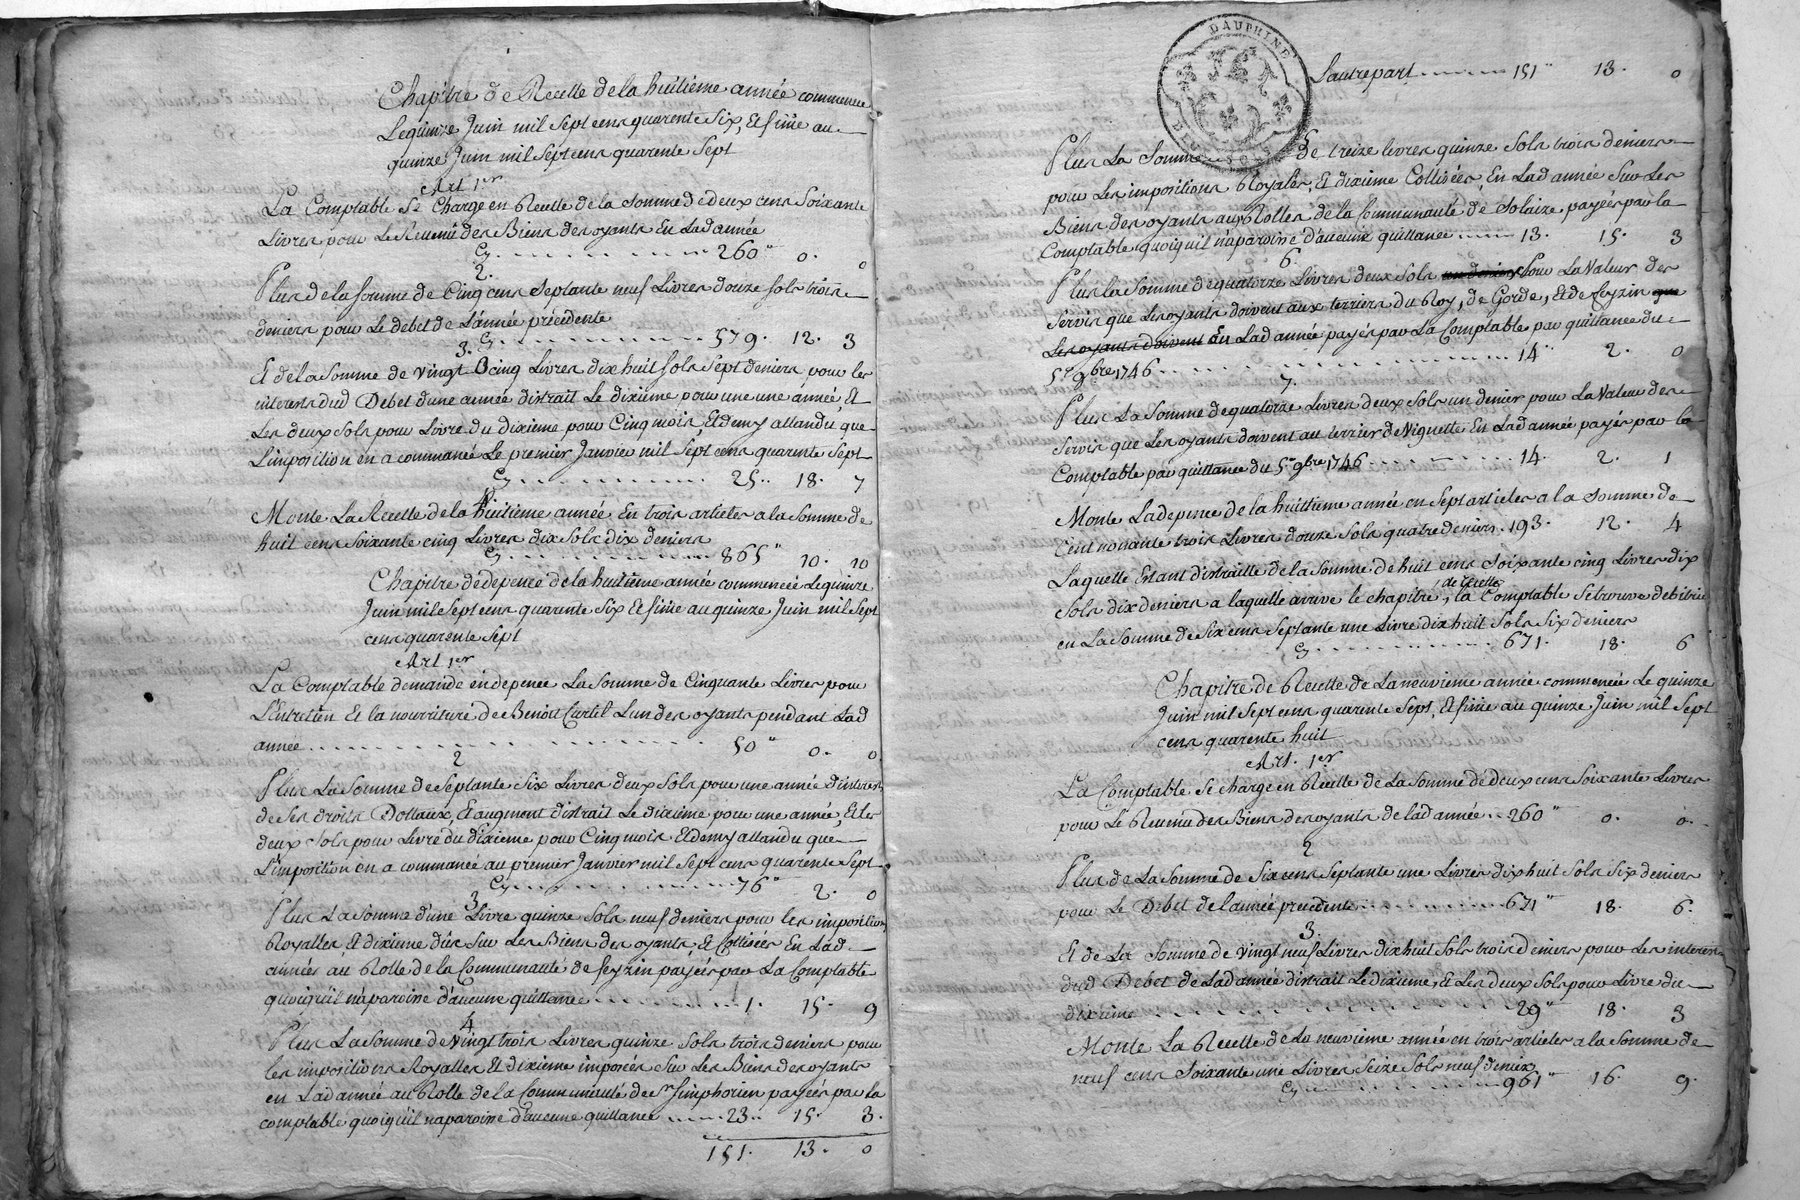 Chapitre de Recette de la huitieme année commencée
Le quinze Juin mil Sept cens quarente Six, Et finie au
quinze Juin mil Sept cens quarente Sept
Art 1er
La Comptable Se Charge en Recette de la Somme de deux cens Soixante
Livres pour Le Revenu des Biens des oyants En Lad année
Cy 260" 0. 0
2.
Plus de la Somme de Cinq cens Septante neuf Livres douze sols trois
deniers pour Le debet de L'année précédente
Cy 579. 12. 3
3.
Et de la Somme de vingt cinq Livres dix huit sols Sept deniers pour les
interests dud Debet d'une année distrait Le dixieme pour une une année, Et
Les deux Sols pour Livre du dixieme pour Cinq mois Et demy attandu que
L'imposition en a commancé Le premier Janvier mil Sept cens quarente Sept
Cy 25. 18. 7
4.
Monte La Recette de la huitieme année En trois articles a la Somme de
huit cens Soixante cinq Livres dix Sols dix deniers
Cy 865" 10. 10
Chapitre de depence de la huitieme année commencée Le quinze
Juin mil Sept cens quarente Six Et finie au quinze Juin mil Sept
cens quarente Sept
Art 1er
La Comptable demande en depence La Somme de Cinquante Livres pour
L'Entretien Et la nourriture de Benoit Curtil L'un des oyants pendant Lad
année 50" 0. 0
2
Plus La Somme de Septante Six Livres deux Sols pour une année d'interest
de Ses droits Dottaux, Et augment distrait Le dixieme pour une année, Et les
deux Sols pour Livre du dixieme pour Cinq mois Et demy attandu que
L'imposition en a commancé au premier Janvier mil Sept cens quarente Sept
Cy 76" 2. 0
3
Plus La Somme d'une Livre quinze Sols neuf deniers pour les impositions
Royalles Et dixieme dûes Sur Les Biens des oyants, Et Cottisées En Lad
année au Rolle de la Communauté de feyzin payées par La Comptable
quoiqu'il n'aparoisse d'aucune quittance 1. 15. 9
4
Plus La Somme de vingt trois Livres quinze Sols trois deniers pour
les impositions Royalles Et dixieme imposées Sur Les Biens des oyants
en Lad année au Rolle de la Communauté de St Simphorien payées par la
comptable quoiqu'il n'aparoisse d'aucune quittance 23. 15. 3.
151. 13. 0
DAUPHINE
L'autre part 151" 13. 0
5
Plus La Somme de treize livres quinze Sols trois deniers
pour Les impositions Royales, Et dixieme Cottisées, En Lad année Sur Les
Biens des oyants aux Rolles de la Communauté de Solaize, payées par la
Comptable quoiqu'il n'aparoisse d'aucune quittance 13. 15. 3
6.
Plus la Somme de quatorze Livres deux Sols un denier Pour La Valeur des
Servis que Les oyants doivent aux terriers du Roy, de Gorde, Et de feyzin que
Les oyants doivent En Lad année payés par La Comptable par quittance du
5e 9bre 1746 14" 2. 0
7.
Plus La Somme de quatorze Livres deux Sols un denier pour La Valeur des
Servis que Les oyants doivent au terrier de Viguette En Lad année payés par la
Comptable par quittance du 5e 9bre 1746 14. 2. 1
Monte La depence de la huitieme année en Sept articles a la Somme de
Cent nonante trois Livres douze Sols quatre deniers 193. 12. 4
Laquelle Estant distraitte de la Somme de huit cens Soixante cinq Livres dix
Sols dix deniers a laquelle arrive le chapitre de Recette, la Comptable Se trouve debitrice
en La Somme de Six cens Septante une Livre dix huit Sols Six deniers
Cy 671. 18. 6
Chapitre de Recette de La neuvieme année commencée Le quinze
Juin mil Sept cens quarente Sept, Et finie au quinze Juin mil Sept
cens quarente huit
Art. 1er
La Comptable Se charge en Recette de La Somme de deux cens Soixante Livres
pour Le Revenu des Biens des oyants de lad année 260" 0. 0.
2
Plus de La Somme de Six cens Septante une Livres dix huit Sols Six deniers
pour Le Debet de L'année precedente 671" 18. 6.
3.
Et de La Somme de vingt neuf Livres dix huit Sols trois deniers pour Les interests
dud Debet de Lad année distrait Le dixieme, Et Les deux Sols pour Livre du
dixieme 29" 18. 3
Monte La Recette de La neuvieme année en trois articles a la Somme de
neuf cens Soixante une Livres Seize Sols neuf deniers
Cy 961" 16. 9.